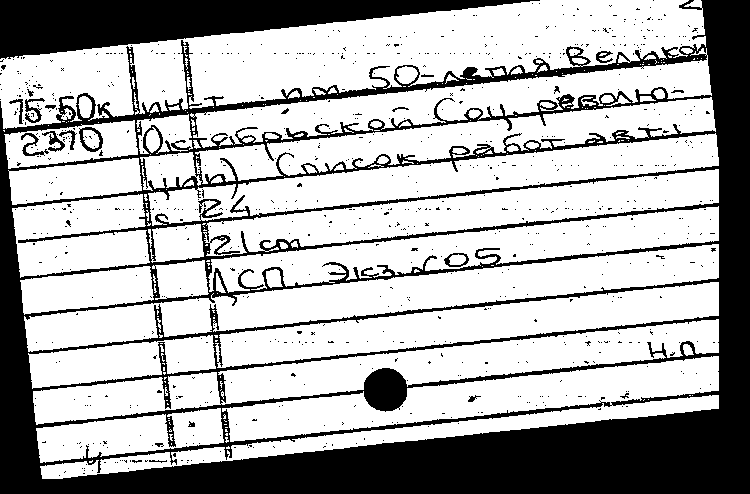 2
75-50к ин-т им. 50-летия Великой
2370 Октябрьской Соц. револю-
ции) Список работ авт.:
с. 24
21 cm
ДСП. Экз. № 05
Н.П
4